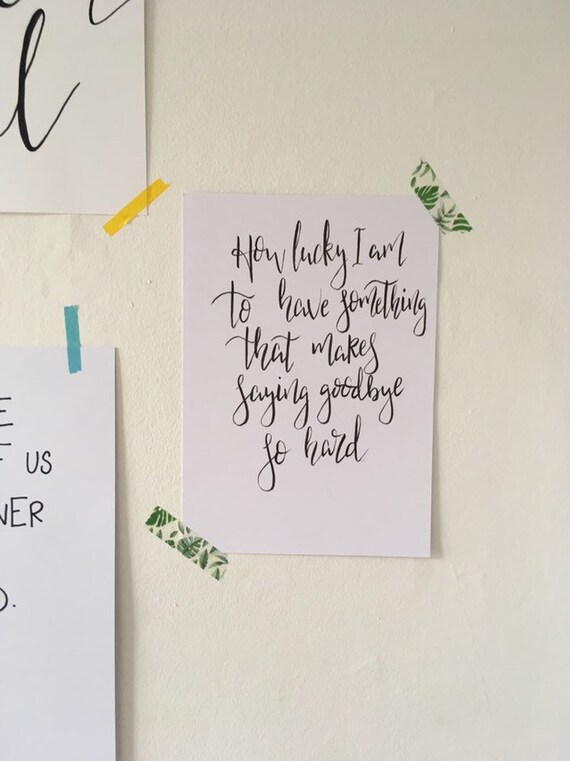 How lucky I am
to have something
that makes
saying goodbye
so hard
E
US
NER